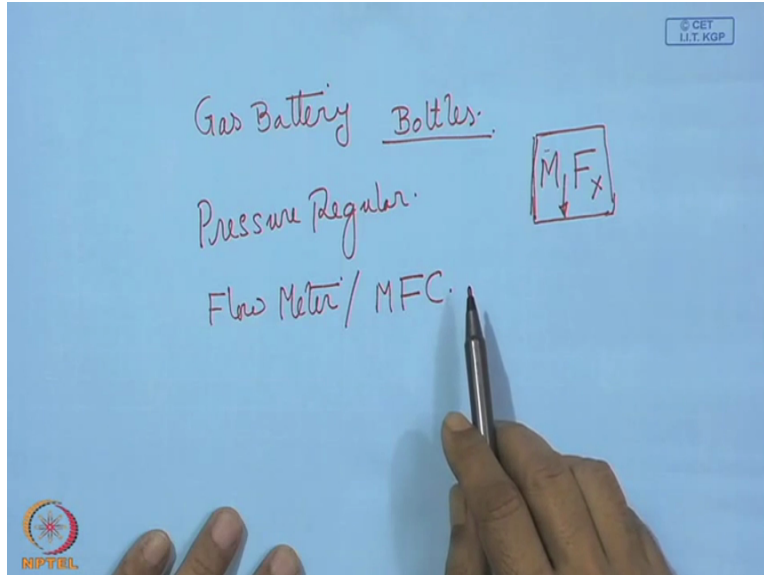 © CET
I.I.T. KGP
Gas Battery Bottles.
M, Fx
Pressure Regular.
Flow Meter / MFC.
NPTEL